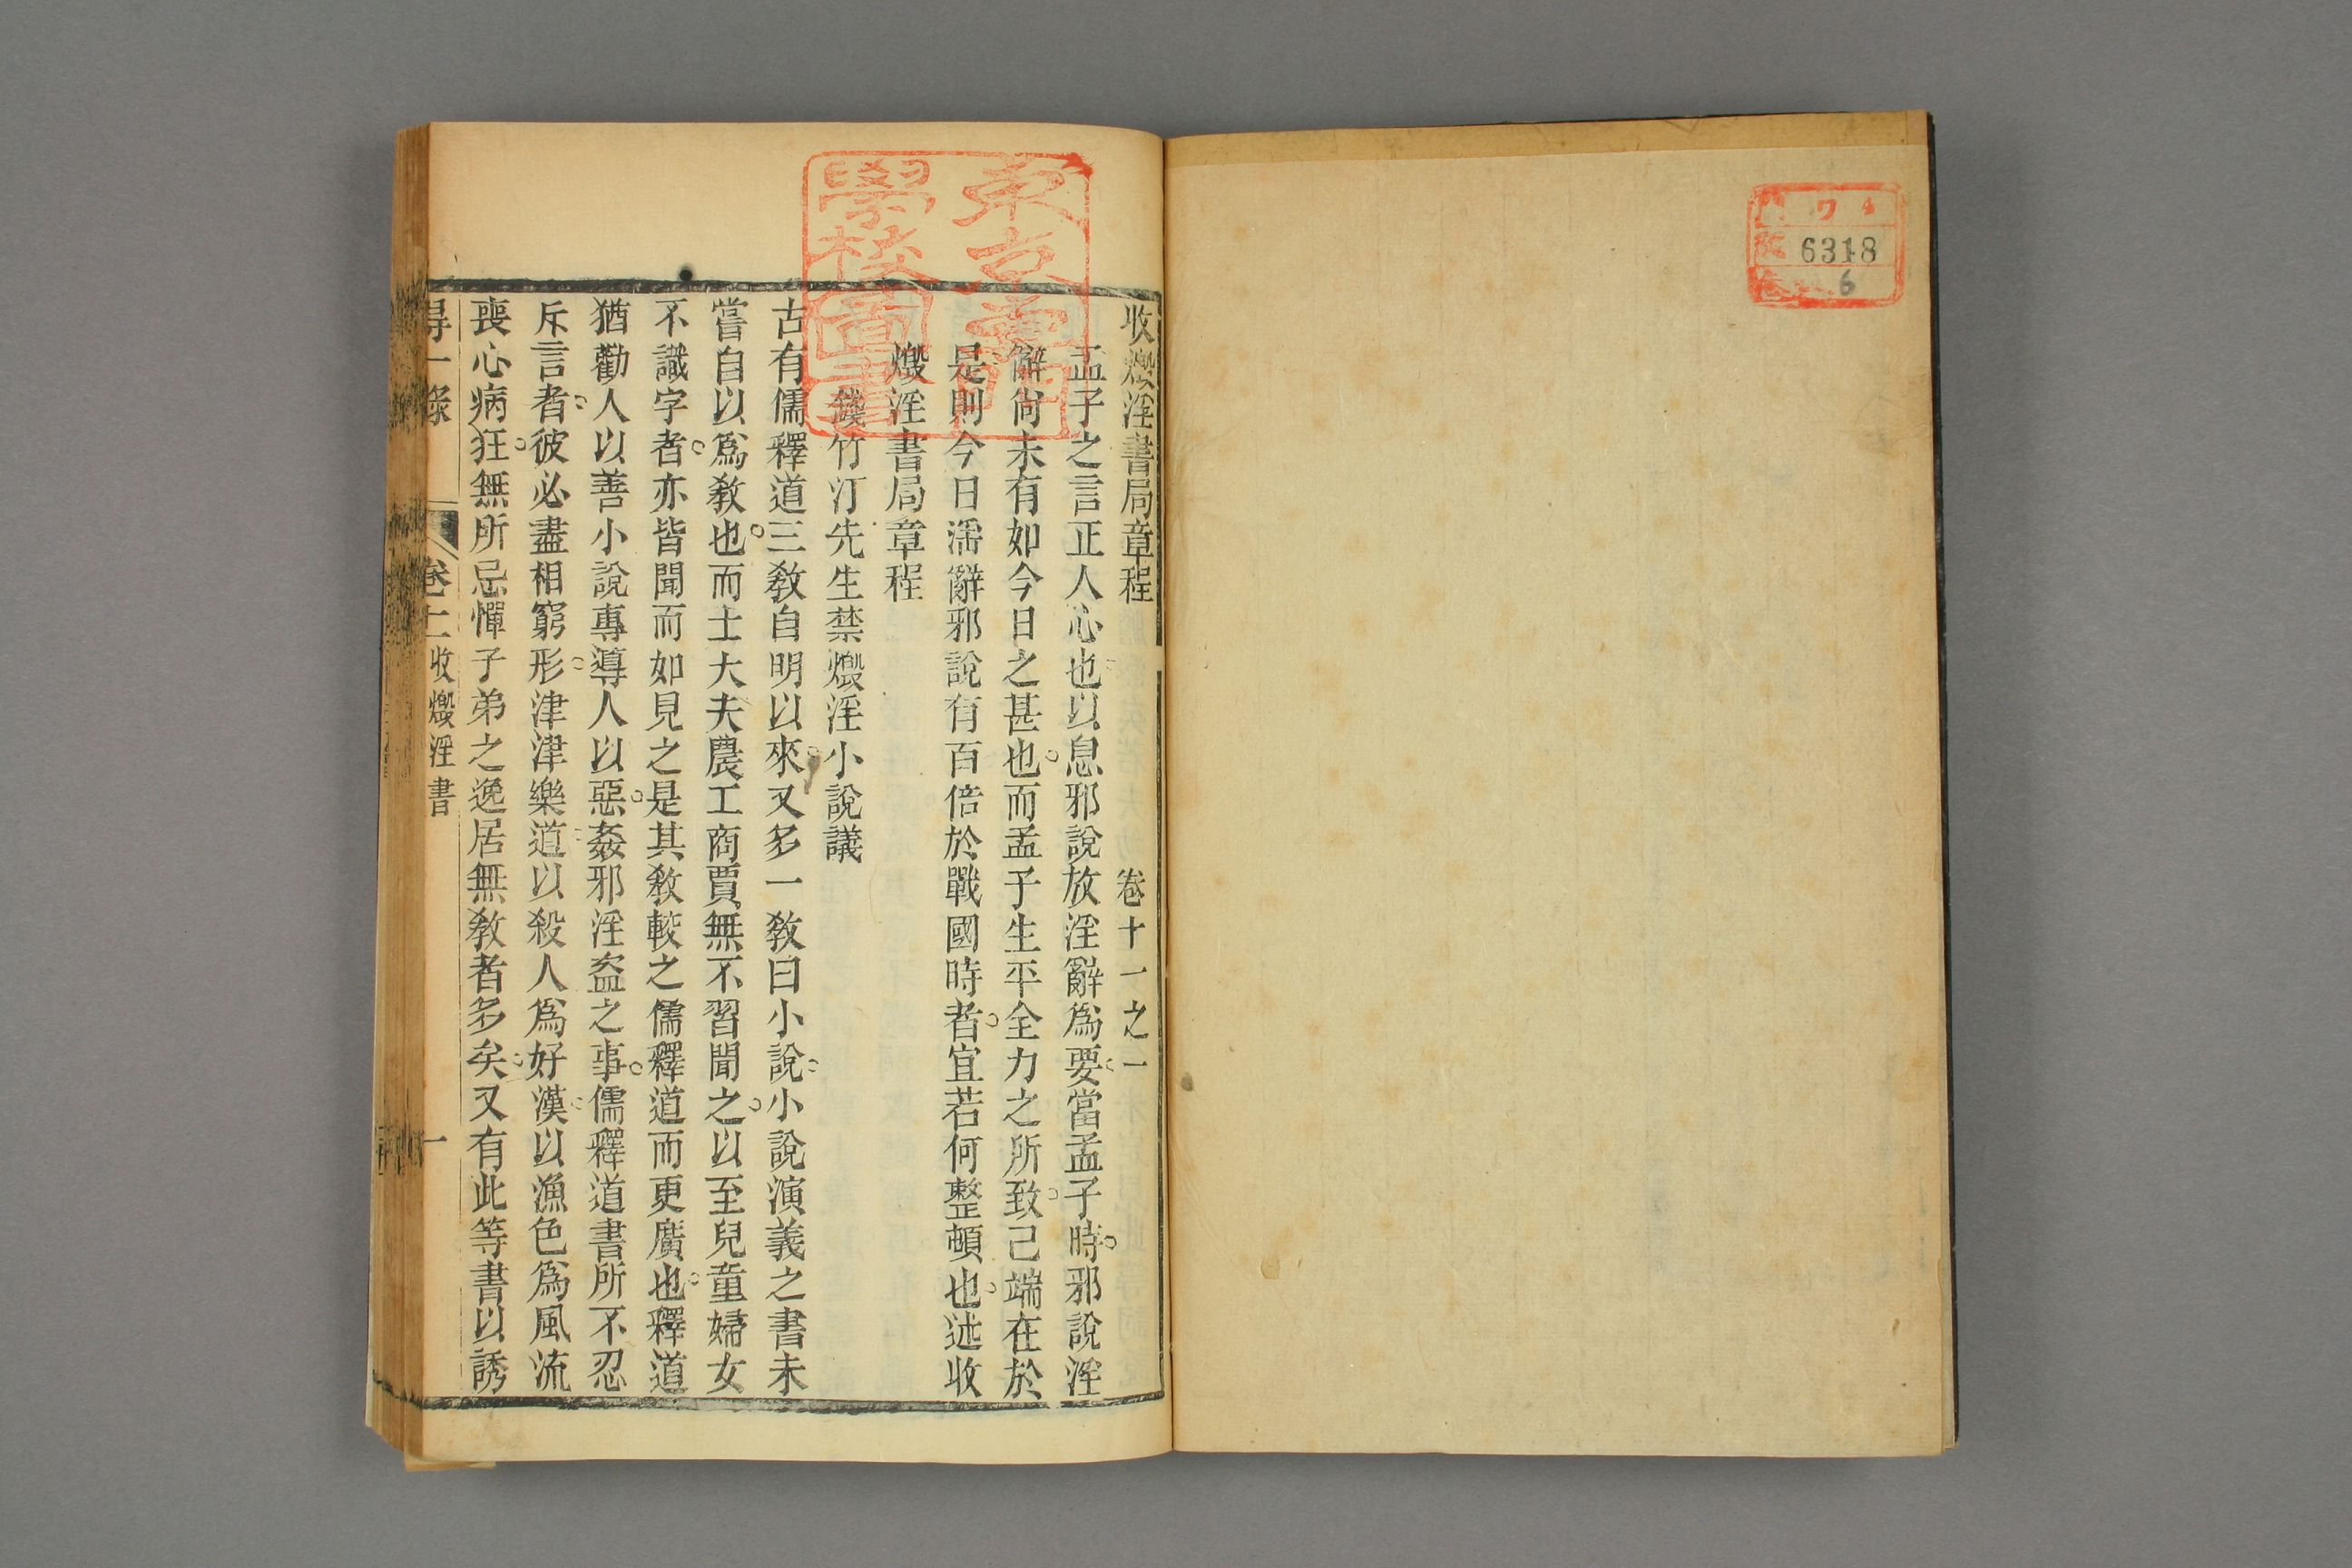 6318
6
收燬淫書局章程 卷十一之一
孟子之言正人心也以息邪說放淫辭爲要當孟子時邪說淫
辭尚未有如今日之甚也而孟子生平全力之所致己端在於
是則今日淫辭邪說有百倍於戰國時者宜若何整頓也述收
燬淫書局章程
錢竹汀先生禁燬淫小說議
古有儒釋道三敎自明以來又多一敎曰小說小說演義之書未
嘗自以爲敎也而士大夫農工商賈無不習聞之以至兒童婦女
不識字者亦皆聞而如見之是其敎較之儒釋道而更廣也釋道
猶勸人以善小說專導人以惡姦邪淫盜之事儒釋道書所不忍
斥言者彼必盡相窮形津津樂道以殺人爲好漢以漁色爲風流
喪心病狂無所忌憚子弟之逸居無敎者多矣又有此等書以誘
得一錄 卷十一 收燬淫書 一